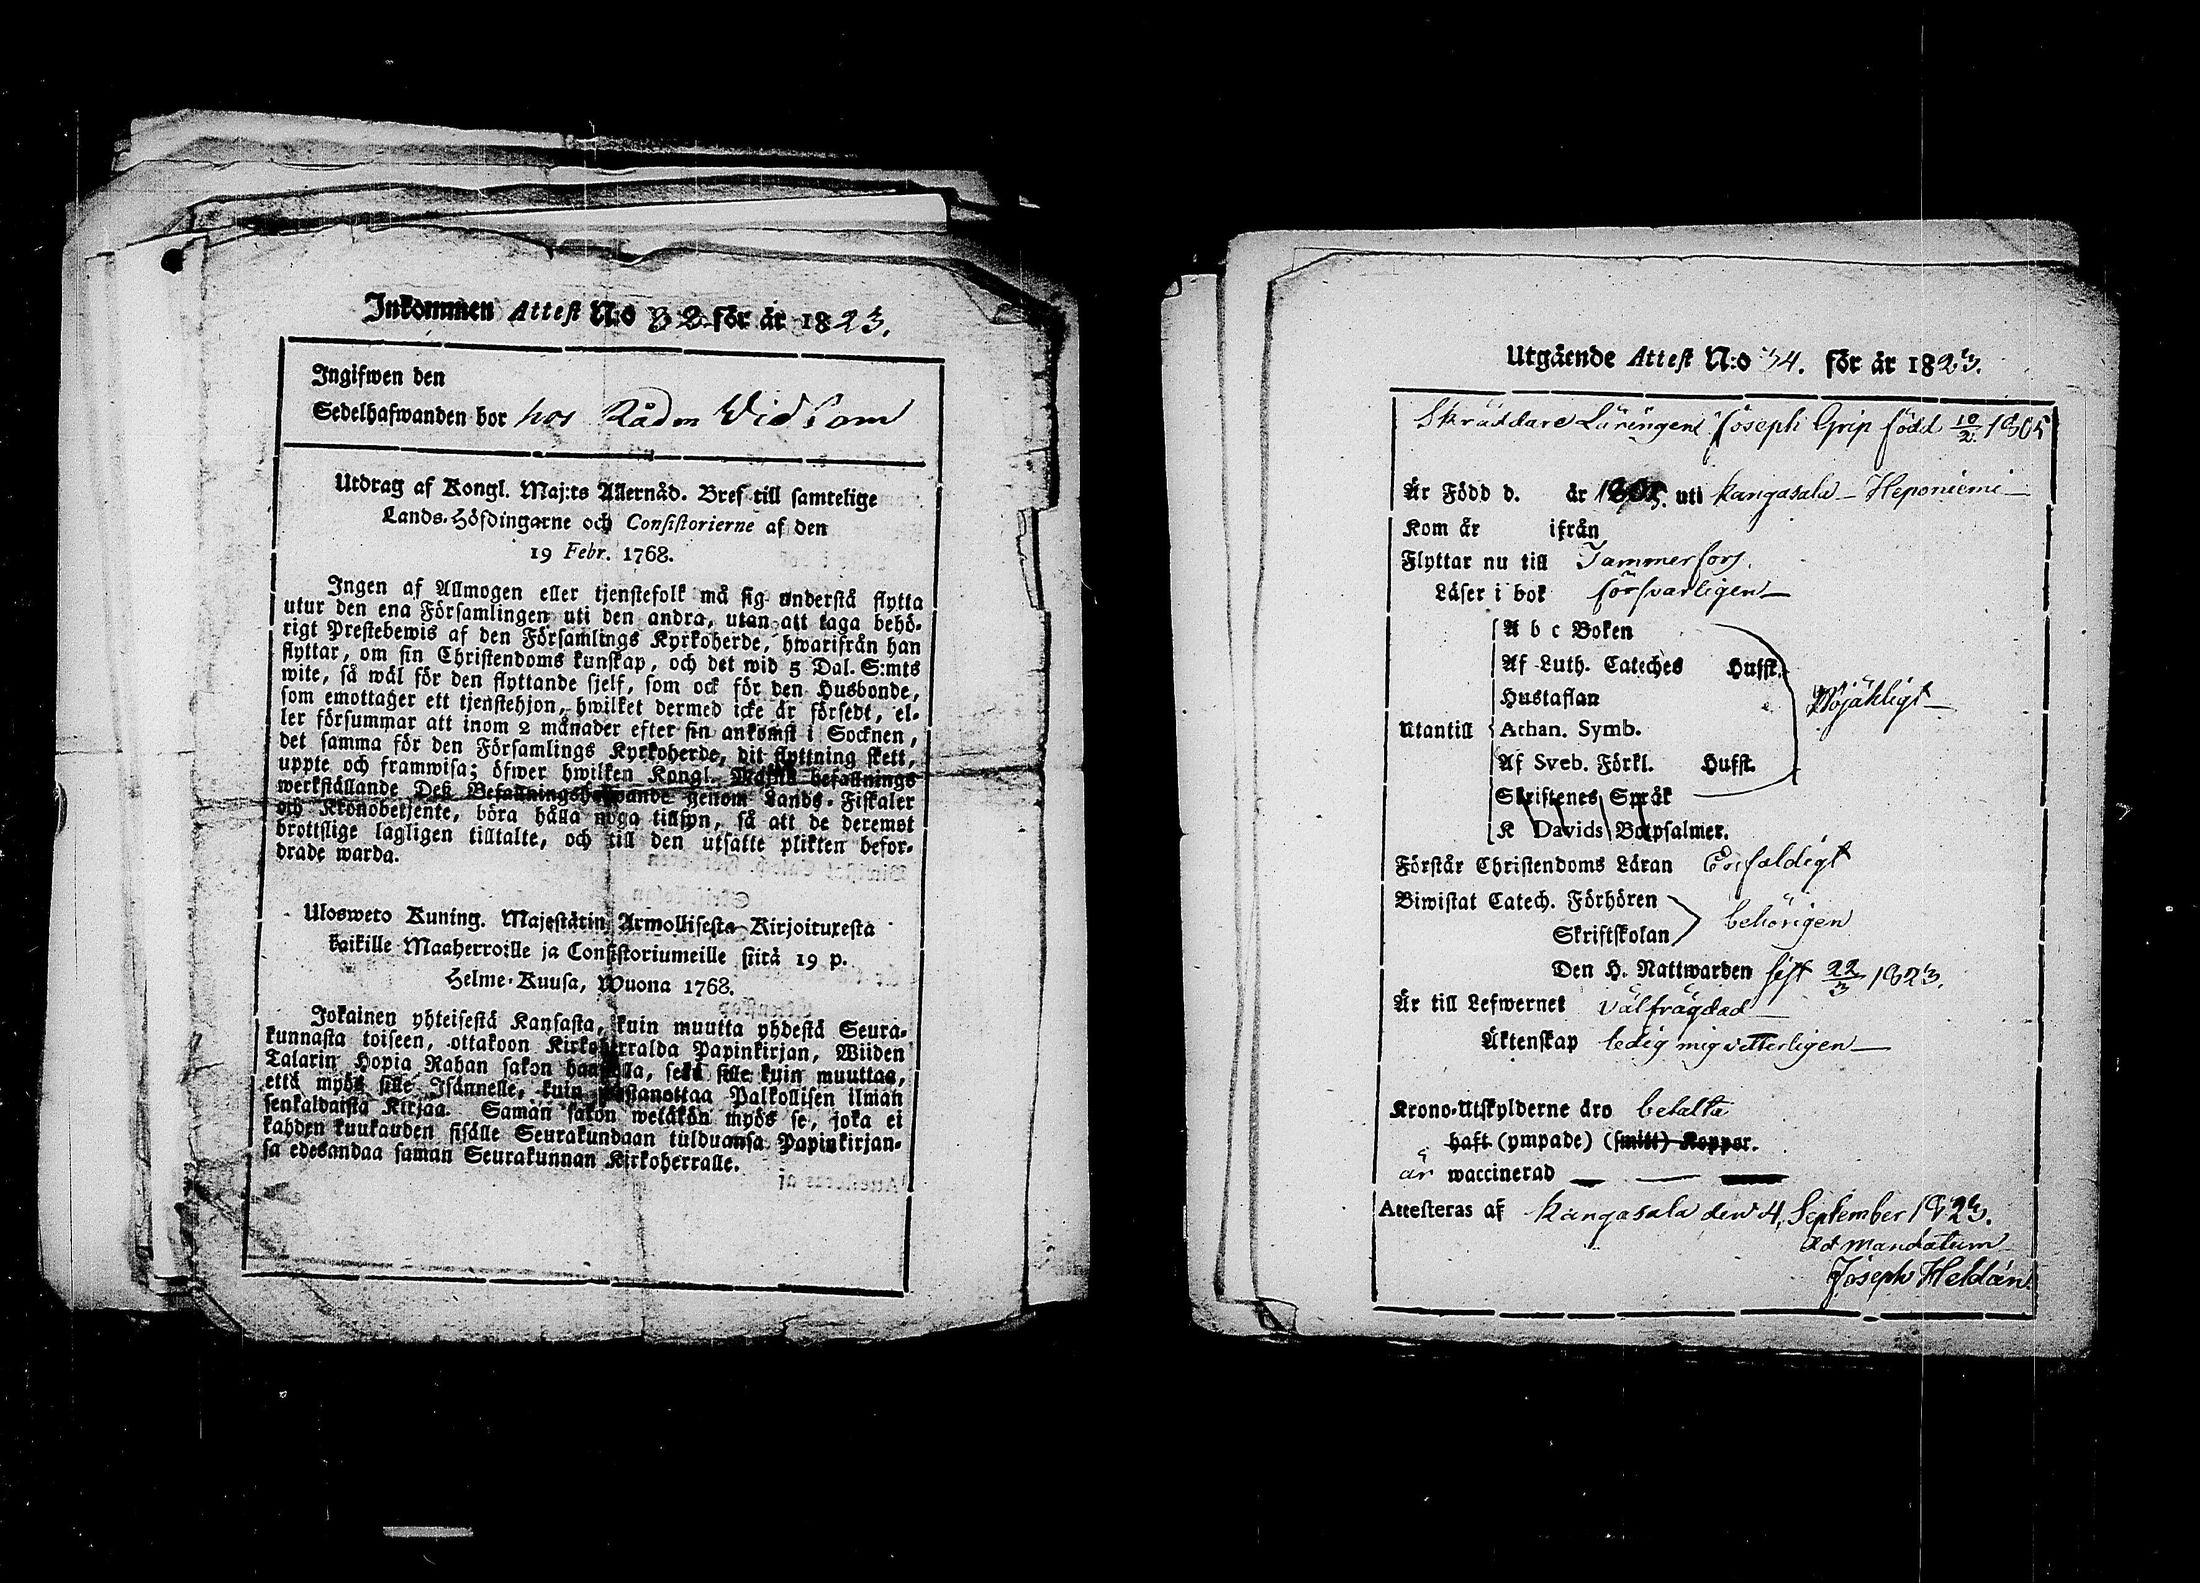 Inkommen Attest N:o 32 för år 1823.
Ingifwen den
Sedelhafwanden bor hos Rådm Vidbom
Utdrag af Kongl. Maj:ts Allernåd. Bref till samtelige
Lands-Höfdingarne och Consistorierne af den
19 Febr. 1768.
Ingen af Allmogen eller tjenstefolk må sig understå flytta
utur den ena Församlingen uti den andra, utan att taga behö-
rigt Prestebewis af den Församlings Kyrkoherde, hwarifrån han
flyttar, om sin Christendoms kunskap, och det wid 5 Dal. S:mts
wite, så wäl för den flyttande sjelf, som ock för den Husbonde,
som emottager ett tjenstehjon, hwilket dermed icke är försedt, el-
ler försummar att inom 2 månader efter sin ankomst i Socknen,
det samma för den Församlings Kyrkoherde, dit flyttning skett,
uppte och framwisa; öfwer hwilken Kongl. Maj:ts befallnings
werkställande Deß Befallningshafwande genom Lands-Fiskaler
och Kronobetjente, böra hålla noga tillsyn, så att de deremot
brottslige lagligen tilltalte, och till den utsatte plikten befor-
drade warda.
Ulosweto Kuning. Majestätin Armollisesta Kirjoituxesta
kaikille Maaherroille ja Consistoriumeille siitä 19 p.
Helme-Kuusa, Wuona 1768.
Jokainen yhteisestä Kansasta, kuin muutta yhdestä Seura-
kunnasta toiseen, ottakoon Kirkoherralda Papinkirjan, Wiiden
Talarin Hopia Rahan sakon haastolla, sekä sille kuin muuttaa,
että myös sille Isännelle, kuin wastanottaa Palkollisen ilman
senkaldaista Kirjaa. Samän sakon wetäkön myös se, joka ei
kahden kuukauden sisälle Seurakundaan tulduansa Papinkirjan-
sa edesandaa saman Seurakunnan Kirkoherralle.
Utgående Attest N:o 34. för år 1823.
Skräddare Läringen Joseph Grip född 10/2 1805
Är Född d. år 1805. uti Kangasala - Heponiemi
Kom år ifrån
Flyttar nu till Tammerfors.
Läser i bok försvarligen
A b c Boken
Af Luth. Cateches Hufst.
Hustaflan Nöjaktigt
Utantill Athan. Symb.
Af Sveb. Förkl. Hufst.
Skriftenes Språk
K Davids Botpsalmer.
Förstår Christendoms Läran Enfaldigt
Biwistat Catech. Förhören behörigen
Skriftskolan
Den H. Nattwarden sist 22/3 1823.
Är till Lefwernet välfrägdad
Äktenskap ledig mig vetterligen
Krono-Utskylderne äro betalta
haft (ympade) (smitt) Koppor.
är waccinerad
Attesteras af Kangasala den 4 September 1823.
Ad mandatum
Joseph Heldán.